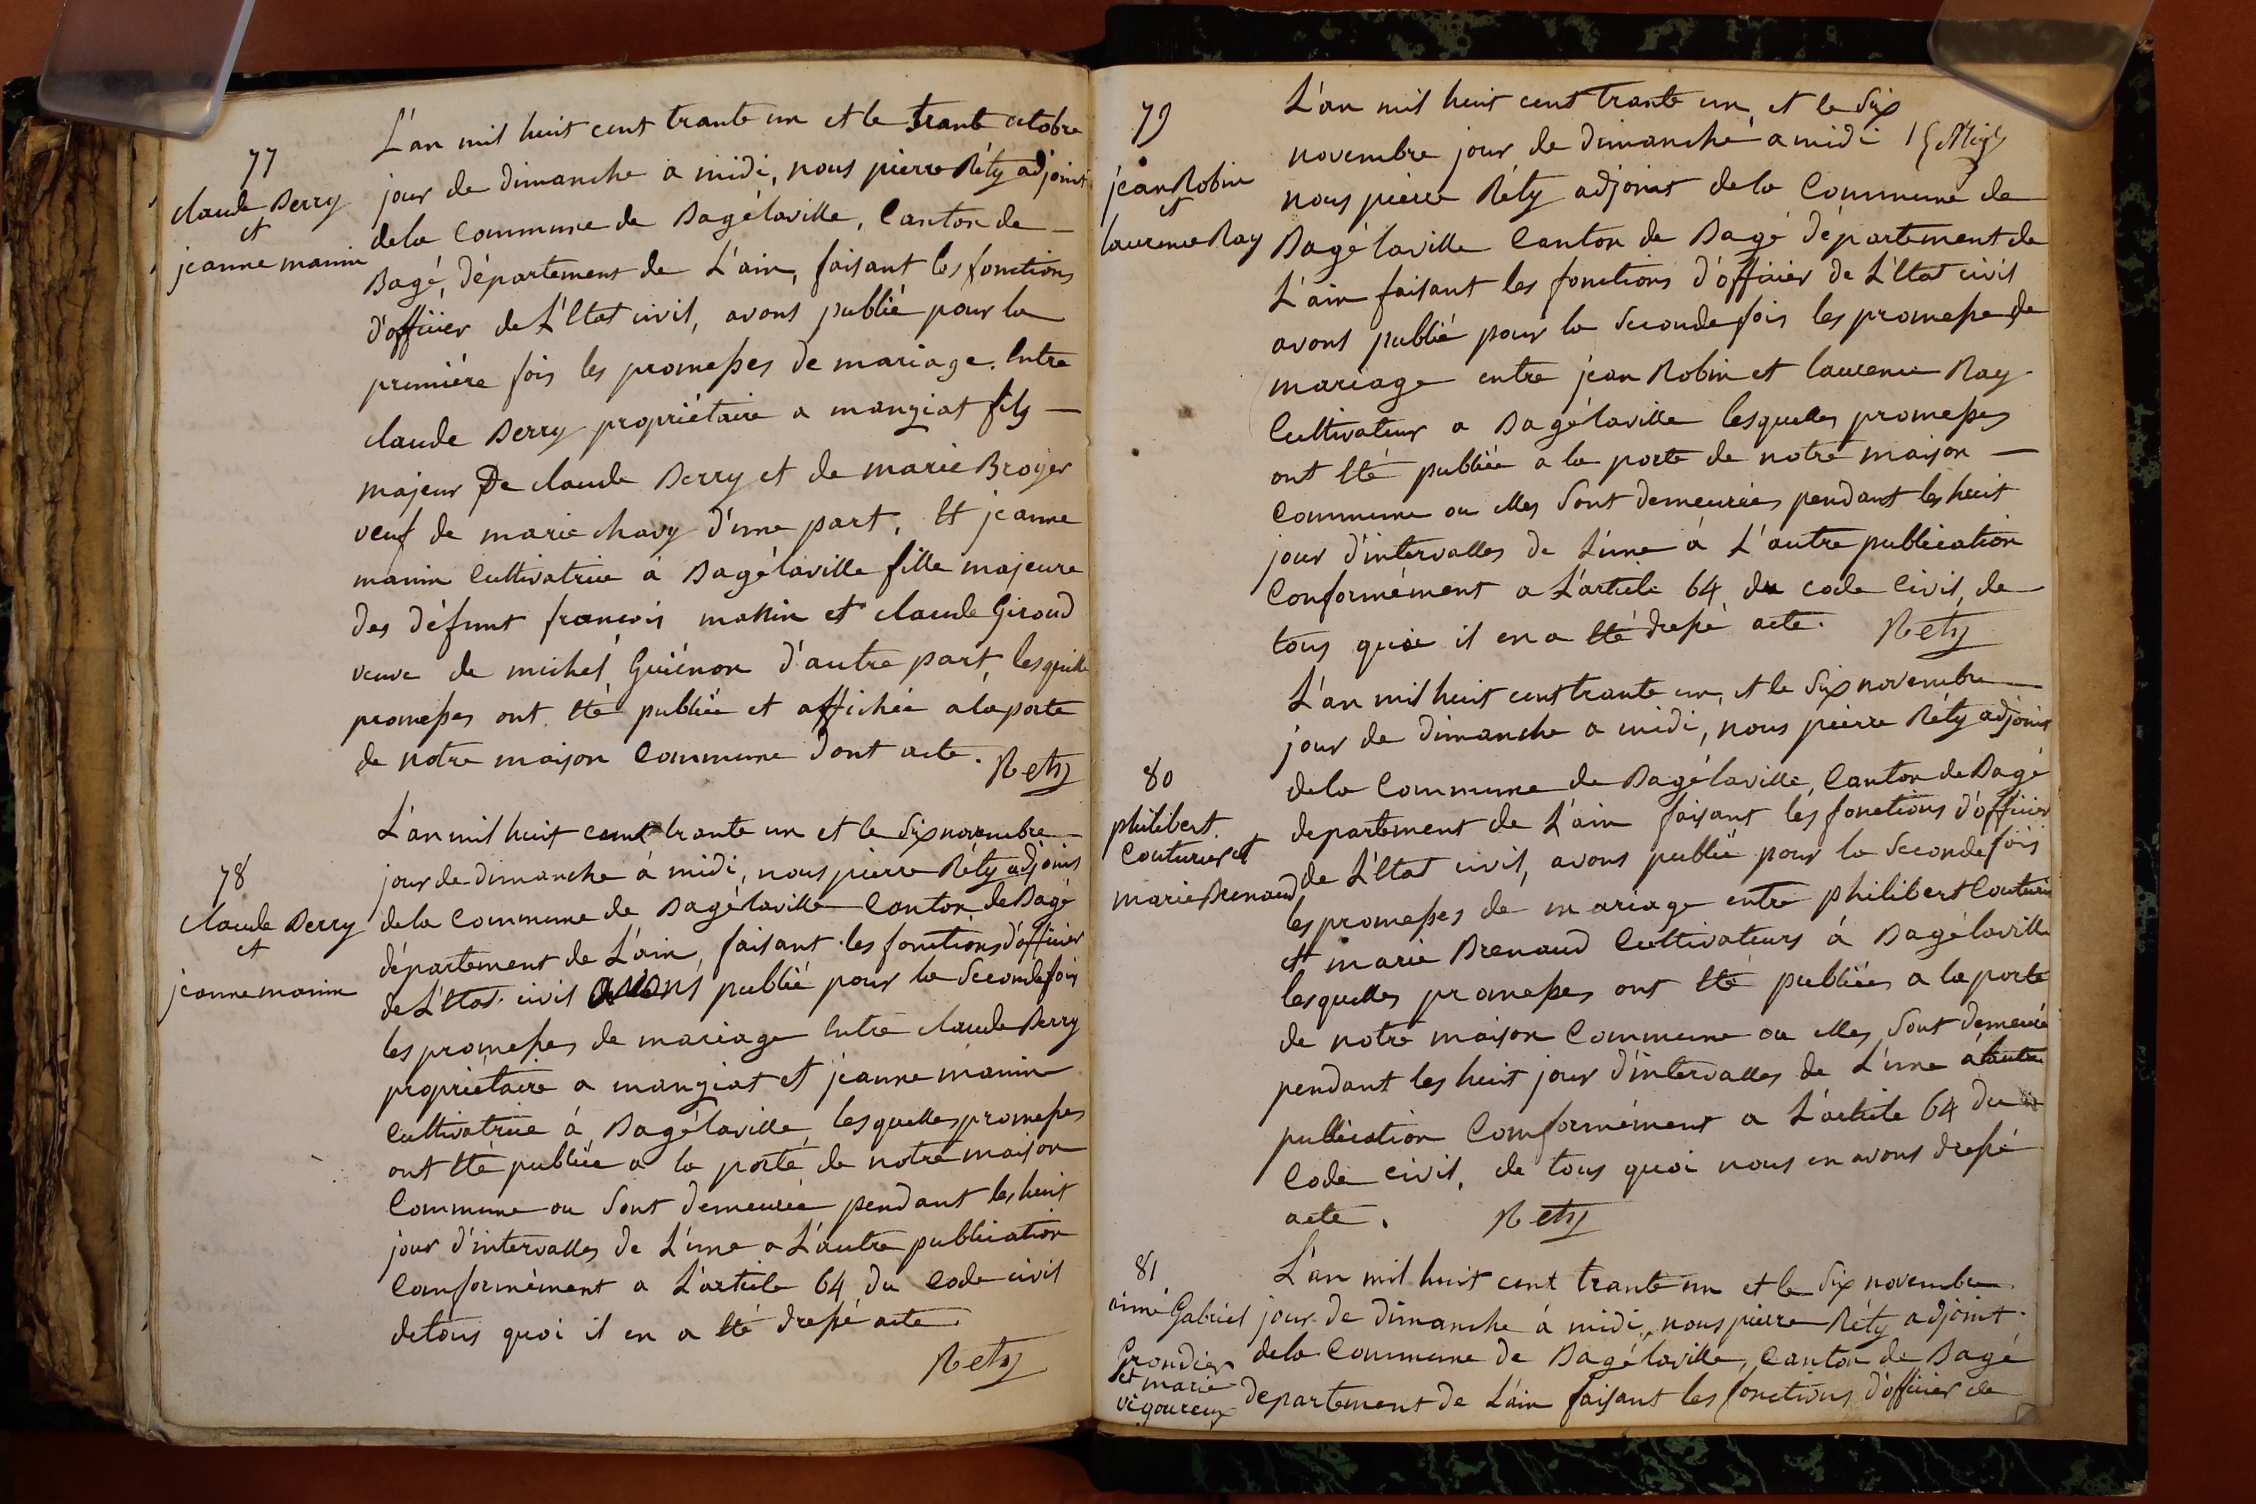 77
claude Berry
et
jeanne manin
L'an mil huit cent trante un et le trante octobre
jour de dimanche a midi, nous pierre Réty adjoint
dela Commune de Bagélaville, Canton de —
Bagé, département de L'ain, faisant les fonctions
d'officier de L'Etat civil, avons publié pour la
première fois les promesses de mariage. Entre
claude Berry propriétaire a mangiat fils —
majeur De claude Berry et de marie Broyer
veuf de marie chavy d'une part, Et jeanne
manin Cultivatrice à Bagélaville fille majeure
des défunt francois manin et claude Giroud
veuve de michel Guiénon d'autre part, lesquelle
promesses ont Eté publiée et affichée a la porte
de notre maison Commune dont acte. Rety
78
claude Berry
et
jeanne manin
L'an mil huit cent trante un et le Six novembre —
jour de dimanche à midi, nous pierre Réty adjoint
dela Commune de Bagélaville Canton de Bagé
département de L'ain, faisant les fonctions d'officier
de L'Etat civil avons publié pour la Seconde fois
les promesses de mariage Entre claude Berry
propriétaire a mangiat et jeanne manin
Cultivatrice à Bagélaville, lesquelles promesses
ont Eté publiée a la porte de notre maison
Commune ou Sont demeurée pendant les huit
jour d'intervalles de L'une a L'autre publication
Conformément a L'article 64 du Code civil
de tous quoi il en a Eté dressé acte.
Rety
79
jean Robin
et
laurence Ray
L'an mil huit cent trante un, et le Six
novembre jour de dimanche a midi
nous pierre Réty adjoint dela Commune de
Bagélaville Canton de Bagé département de
L'ain faisant les fonctions d'officier de L'Etat civil
avons publié pour la Seconde fois les promesse de
mariage entre jean Robin et laurence Ray
Cultivateur a Bagélaville lesquelles promesses
ont Eté publiée a la porte de notre maison —
Commune ou elles Sont demeurées pendant les huit
jour d'intervalles de L'une à L'autre publication
Conformément a L'article 64 du code Civil, de
tous quoi il en a Eté dressé acte. Rety
80
philibert
Couturier et
marie Brenaud
L'an mil huit cent trante un, et le Six novembre —
jour de dimanche a midi, nous pierre Réty adjoint
dela Commune de Bagélaville, Canton de Bagé
departement de L'ain faisant les fonctions d'officier
de L'Etat civil, avons publié pour la Seconde fois
les promesses de mariage entre philibert Couturier
et marie Brenaud Cultivateurs à Bagélaville
lesquelles promesses ont Eté publiées a la porte
de notre maison Commune ou elles Sont demeuré
pendant les huit jour d'intervalles de L'une à lautre
publication Comformément a L'article 64 du
Code civil, de tous quoi nous en avons dressé
acte. Rety
81
aimé Gabriel
Grondier
et marie
vigoureux
L'an mil huit cent trante un et le Six novembre
jour de dimanche à midi, nous pierre Réty adjoint
dela Commune de Bagélaville, Canton de Bagé
departement de L'ain faisant les fonctions d'officier de